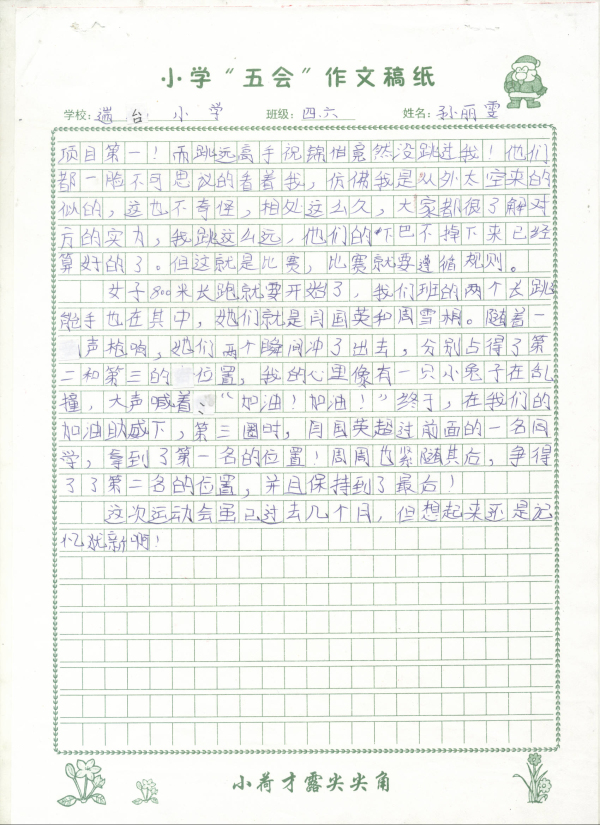 小学“五会”作文稿纸
学校：遄台小学 班级：四.六 姓名：孙丽雯
项目第一！而跳远高手祝锦怕竟然没跳过我！他们
都一脸不可思议的看着我，仿佛我是从外太空来的
似的，这也不奇怪，相处这么久，大家都很了解对
方的实力，我跳这么远，他们的下巴不掉下来已经
算好的了。但这就是比赛，比赛就要遵循规则。
女子800米长跑就要开始了，我们班的两个长跑
能手也在其中，她们就是闫国英和周雪桐。随着一
声枪响，她们两个瞬间冲了出去，分别占得了第
二和第三的位置，我的心里像有一只小兔子在乱
撞，大声喊着：“加油！加油！”终于，在我们的
加油助威下，第三圈时，闫国英超过前面的一名同
学，拿到了第一名的位置！周周也紧随其后，争得
了了第二名的位置，并且保持到了最后！
这次运动会虽已过去几个月，但想起来还是记
忆犹新啊！
小荷才露尖尖角